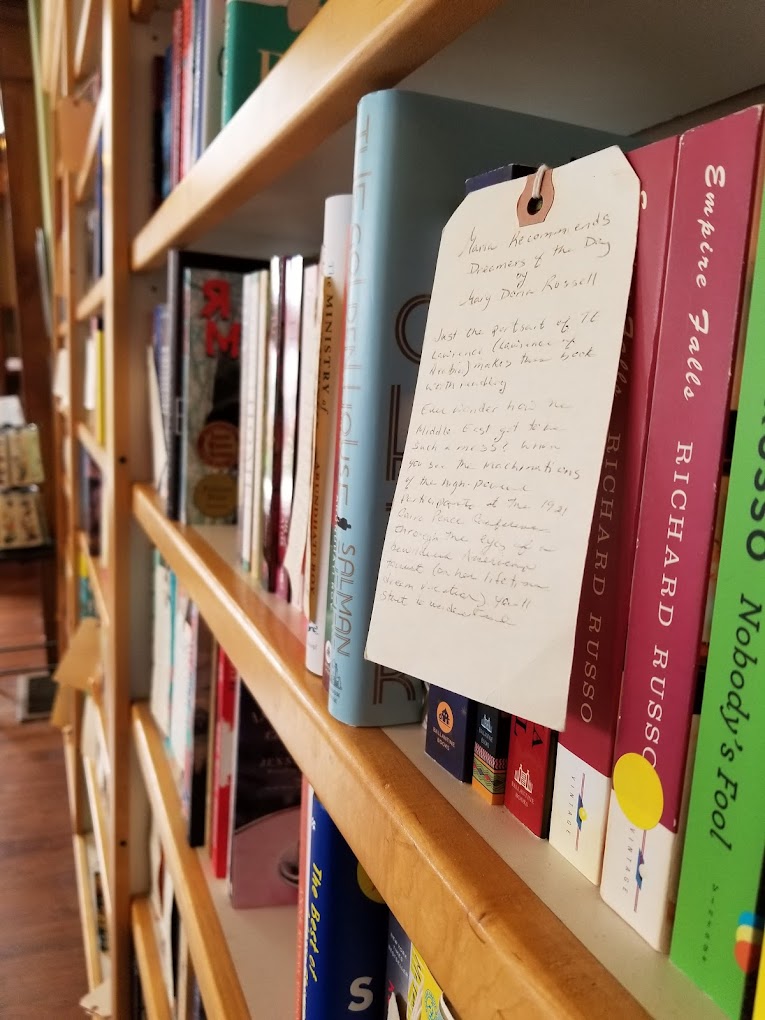 THE GOLDEN HOUSE
SALMAN
THE MINISTRY of
Maria Recommends
Dreamers of the Day
by
Mary Doria Russell
Just the portrait of TE
Lawrence (Lawrence of
Arabia) makes this book
worth reading
Ever wonder how the
Middle East got to be
such a mess? When
you see the machinations
of the high-powered
participants at the 1921
Cairo Peace Conference
through the eyes of a
bewildered American
tourist (on her lifetime
dream vacation) you'll
start to understand
BALLANTINE
BOOKS
BALLANTINE
BOOKS
RICHARD RUSSO
VINTAGE
Empire Falls RICHARD RUSSO
VINTAGE
RUSSO Nobody's Fool
R
M
The Best of
S